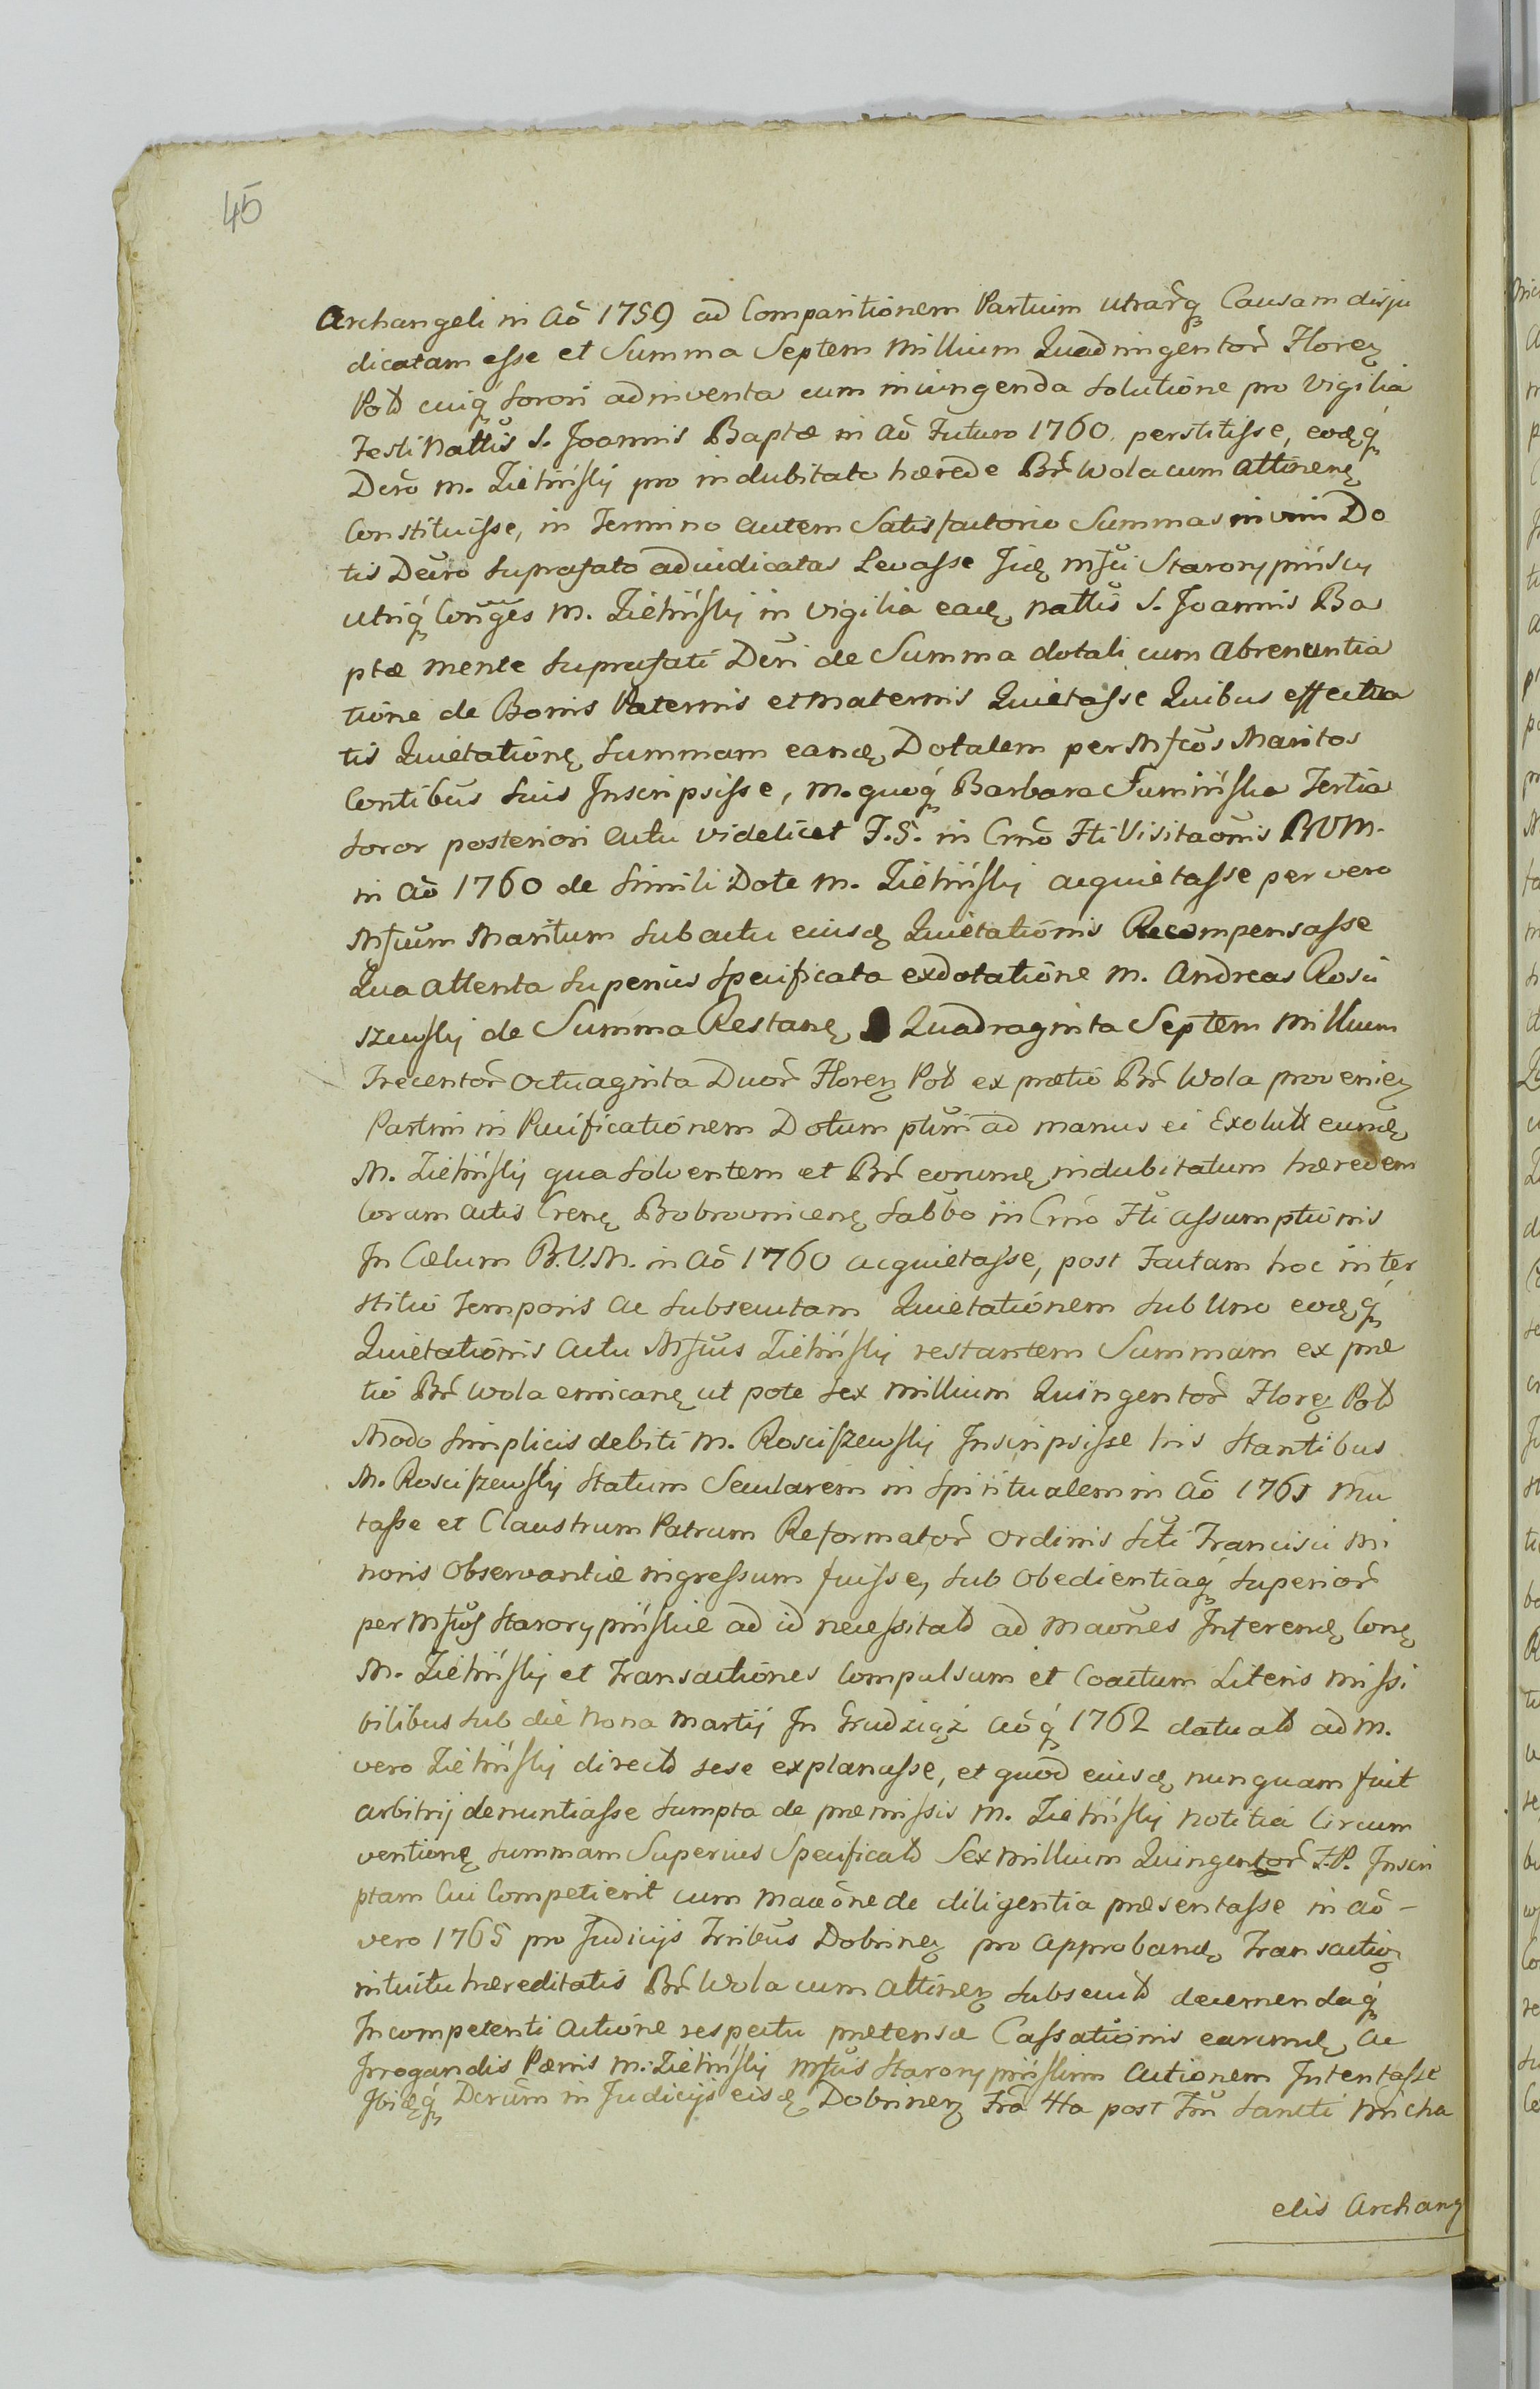 45
Archangeli in Aõ 1759 ad Comparitionem Partium utrarq̃ Causam disju
dicatam esse et Summa Septem Millium Quadringentor̃ Floreȝ
Pold cuiq̃ sorori adinventa cum iniungenda solutione pro Vigilia
Festi Natt̃is S. Joannis Baptæ in Aõ Futuro 1760. perstitisse, eodq̃
Decro M. Zieliński pro indubitato hærede Br̃ Wola cum attineñ
Constituisse, in Termino autem Satisfactorio Summas in vim Do
tis Decro suprafato adiudicatas Levasse
utriq̃ Conġes M. Zieliński in Vigilia ead̨ Natt̃is S. Joannis Ba
ptæ mente suprafati Decri de Summa dotali cum abrenuntia
tione de Bonis Paternis et Maternis Quietasse Quibus effectua
tis Quietationę Summam eand̨ Dotalem per Mfcos Maritos
Contibus suis Inscripsisse, M. quoq̃ Barbara Sumińska Tertia
soror posteriori actu videlicet F. S. in Crño Fti Visitaõnis BVM.
in Aõ 1760 de simili Dote M. Zieliński acquietasse per vero
Mfcum Maritum sub actu eiusd̨ Quietationis Recompensasse
Qua attenta superius specificata exdotatione M. Andreas Rosci
szewski de Summa Restanę Quadraginta Septem Millium
Trecentor̃ Octuaginta Duor̃ Floreȝ Pold ex prætio Br̃ Wola provenieȝ
Partim in Pacificationem Dotum pt̃im ad manus ei Exolut eund̨
M. Zieliński qua solventem et Br̃ eorumd̨ indubitatum hæredem
Coram Actis Crenę Bobrovnicenę Sabbo in Crño Fti Assumptionis
In Cælum B.V.M. in Aõ 1760 acquietasse, post Factam hoc inter
stitio Temporis ac subsecutam Quietationem sub Uno eodq̃
Quietationis Actu Mfcus Zieliński restantem Summam ex præ
tio Br̃ Wola emicanę ut pote sex millium Quingentor̃ Florę Pold
Modo simplicis debiti M. Rosciszewski Inscripsisse his stantibus
M. Rosciszewski statum Secularem in Spiritualem in Aõ 1761 Mu
tasse et Claustrum Patrum Reformator̃ Ordinis Scti Francisci Mi
noris Observantiæ ingressum fuisse, sub Obedientiaq̃ Superior̃
per Mfcos Starorypińskie ad id necessitatd ad Maõnes Interend̨ Conę
M. Zieliński et Transactiones Compulsum et Coactum Literis Missi
bilibus sub die Nona Martij In Grudziąż Aõq̃ 1762 datuatd ad M.
vero Zieliński directd sese explanasse, et quod eiusd̨ nunquam fuit
arbitrij denuntiasse sumpta de præmissis M. Zieliński notitia Circum
ventionę Summam Superius Specificatd Sex Millium Quingentor̃ F.P. Inscri
ptam Cui Competierit cum Macaõne de diligentia præsentasse in Aõ –
vero 1765 pro Judicijs Trribus Dobrineȝ pro Approband̨ Transactioȝ
intuitu hæreditatis Br̃ Wola cum attineȝ subsecutd decernendaq̃
Incompetenti Actione respectu prætensæ Cassationis earumd̨ ac
Irrogandis Pænis M. Zieliński Mfcus Starorypińskim Actionem Intentasse
Ibid̨q̃ Decrum in Judicijs eisd̨ Dobrineȝ Fra 4ta post Fm Sancti Micha
elis Archang